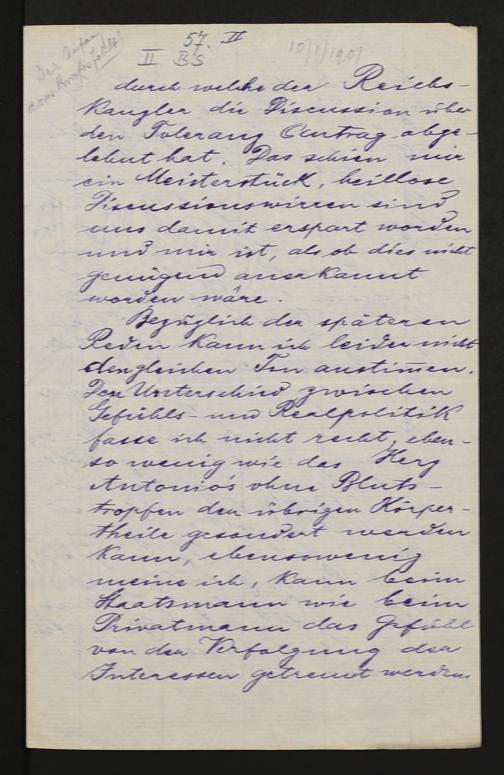 Der Anfang
dieses Briefes fehlt!
57. II
II BS
10/1/1901
durch welche der Reichs-
kanzler die Discussion über
den Toleranz Antrag abge-
lehnt hat. Das schien mir
ein Meisterstück, heillose
Discussionswirren sind
uns damit erspart worden
und mir ist, als ob dies nicht
genügend anerkannt
worden wäre.
Bezüglich der späteren
Reden kann ich leider nicht
den gleichen Ton anstimmen.
Den Unterschied zwischen
Gefühls- und Realpolitik
fasse ich nicht recht, eben-
so wenig wie das Herz
Antonio's ohne Bluts-
tropfen den übrigen Körper-
theile gesondert werden
kann, ebensowenig
meine ich, kann beim
Staatsmann wie beim
Privatmann das Gefühl
von der Verfolgung der
Interessen getrennt werden